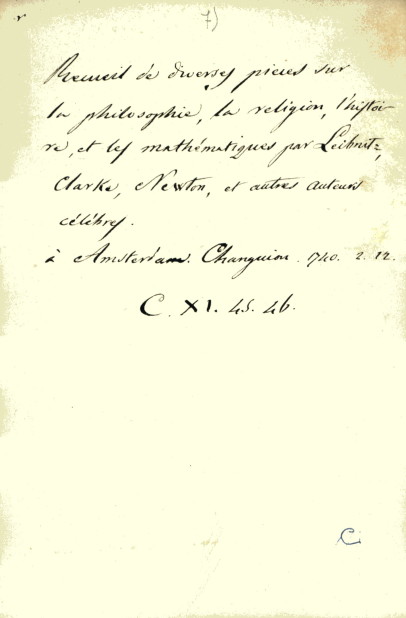 7)
Recueil de diverses pieces sur
la philosophie, la religion, l'histoi
re, et les mathématiques par Leibnitz,
Clarke, Newton, et autres auteurs
célébres.
à Amsterdam. Changuion. 740. 2. 12.
C. XI. 45. 46.
C